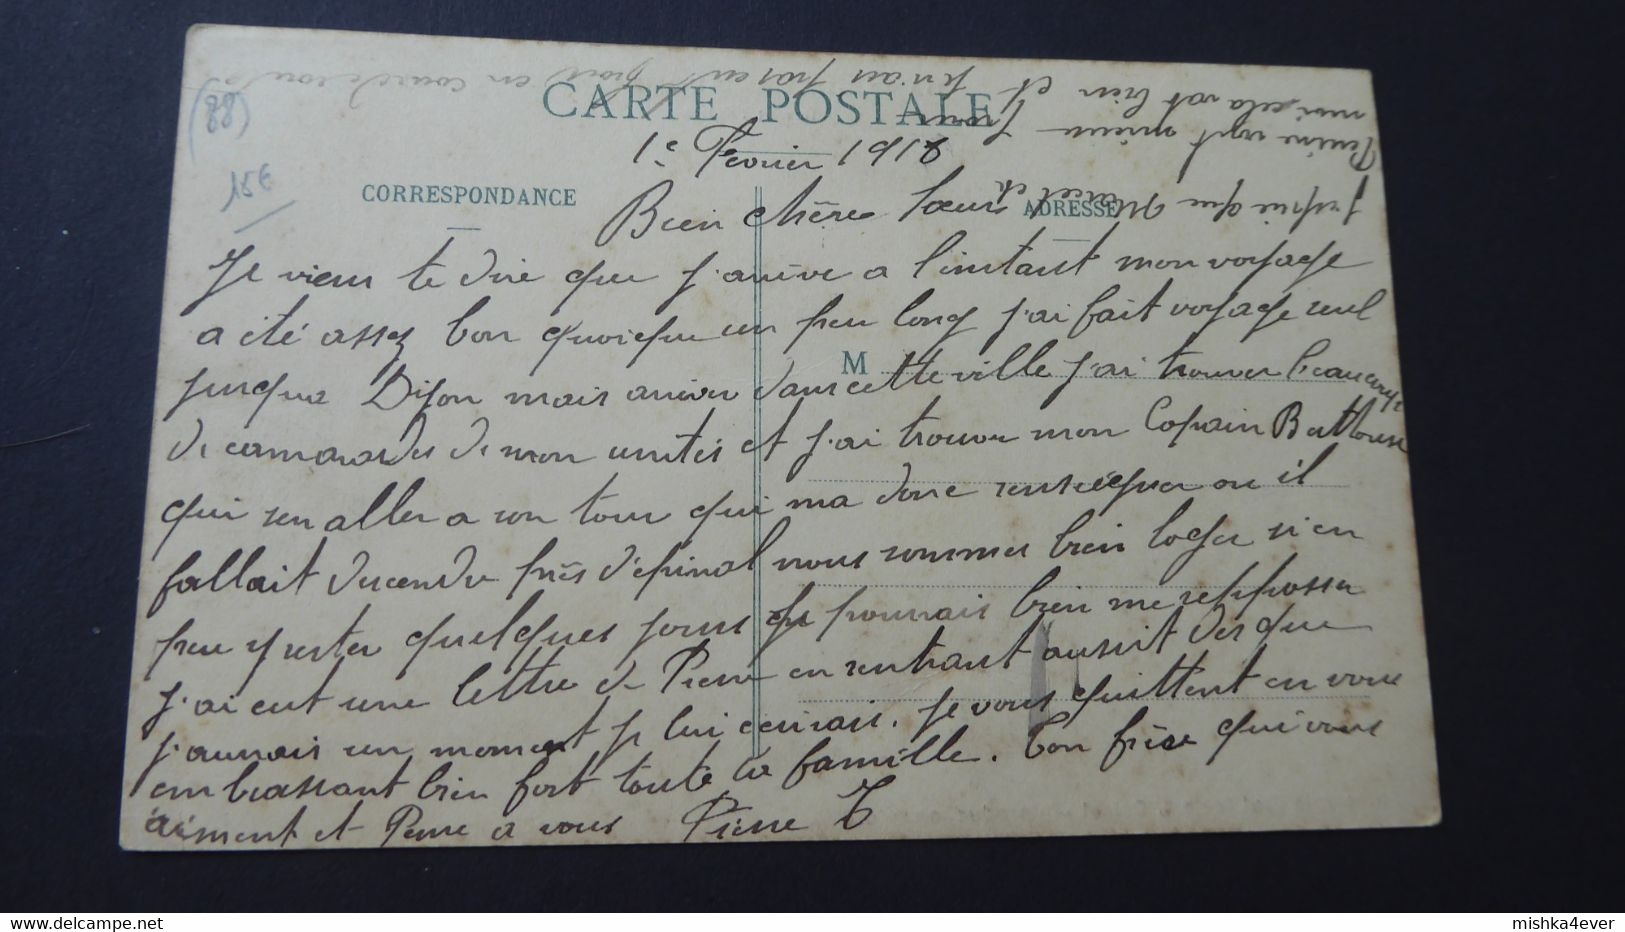 (88)
15€
CARTE POSTALE
1e Fevrier 1918
CORRESPONDANCE
ADRESSE
M
Bien chère Sœur
Je viens te dire que j'arrive a l'instant mon voyage
a été assez bon quoique un peu long j'ai fait voyage seul
jusqua Dijon mais arriver dans cette ville j'ai trouver beaucoups
de camarades de mon unités et j'ai trouver mon Copain Berthous
qui sen aller a son tour qui ma donc renseigner ou il
fallait descendre près d'épinal nous sommes bien loger si en
peu y rester quelques jours je pourrais bien me repposser
j'ai eut une lettre de Pierre en rentrant aussit des que
j'aurrais un moment je lui écrirais. je vous quittent en vous
embrassant bien fort toute la famille. Ton frère qui vous
aiment et Pense a vous Pierre T
J'espui que Marcel et
Penine vont mieux pour
moi, cela vat bien et
j'n'ai pas eut froid en cour de route
mishka4ever